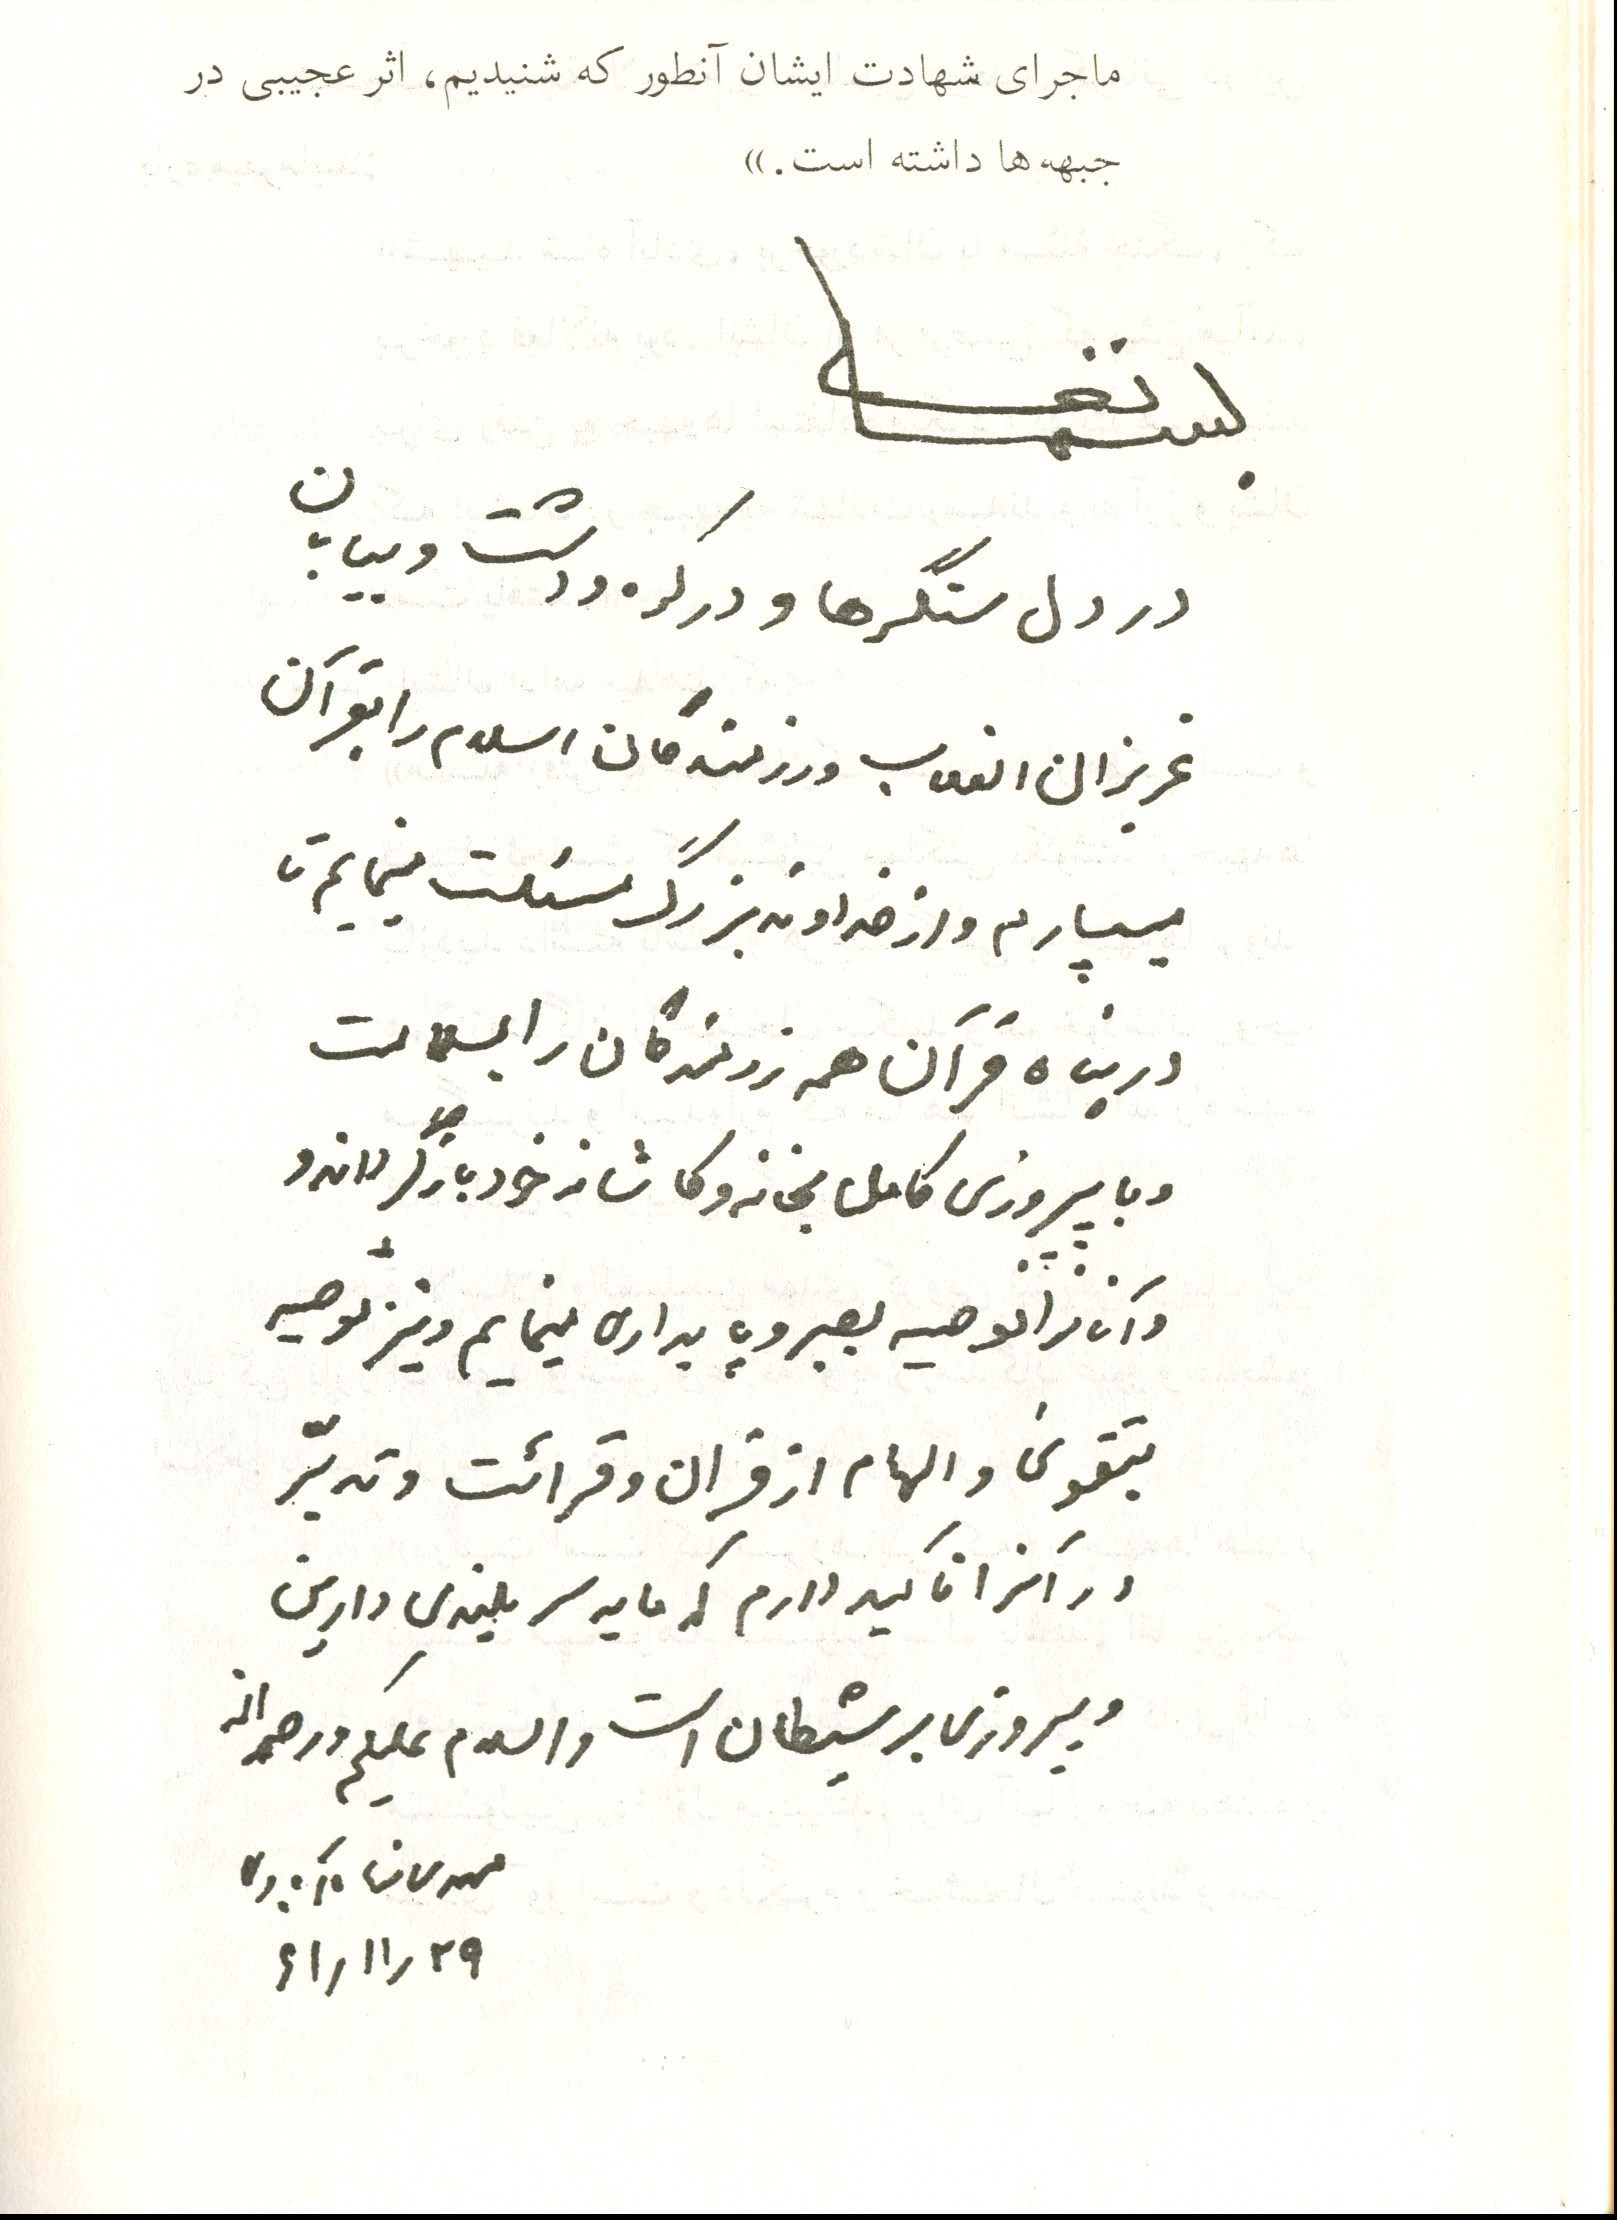 ماجرای شهادت ایشان آنطور که شنیدیم، اثر عجیبی در
جبهه ها داشته است.»
بسمه تعالی
در دل سنگرها و در کوه و دشت و بیابان
عزیزان انقلاب و رزمندگان اسلام را بقرآن
میسپارم و از خداوند بزرگ مسئلت مینمایم تا
در پناه قرآن همه رزمندگان را بسلامت
و با پیروزی کامل بخانه و کاشانه خود بازگرداند و
و آنانرا توصیه بصبر و پایداری مینمایم و نیز توصیه
بتقوی و الهام از قران و قرائت و تدبّر
در آنرا تاکید دارم که مایه سربلندی دارین
و پیروزی بر شیطان است والسلام علیکم و رحمه الله
مهدی شاه آبادی
۲۹ر۱۱ر۶۱